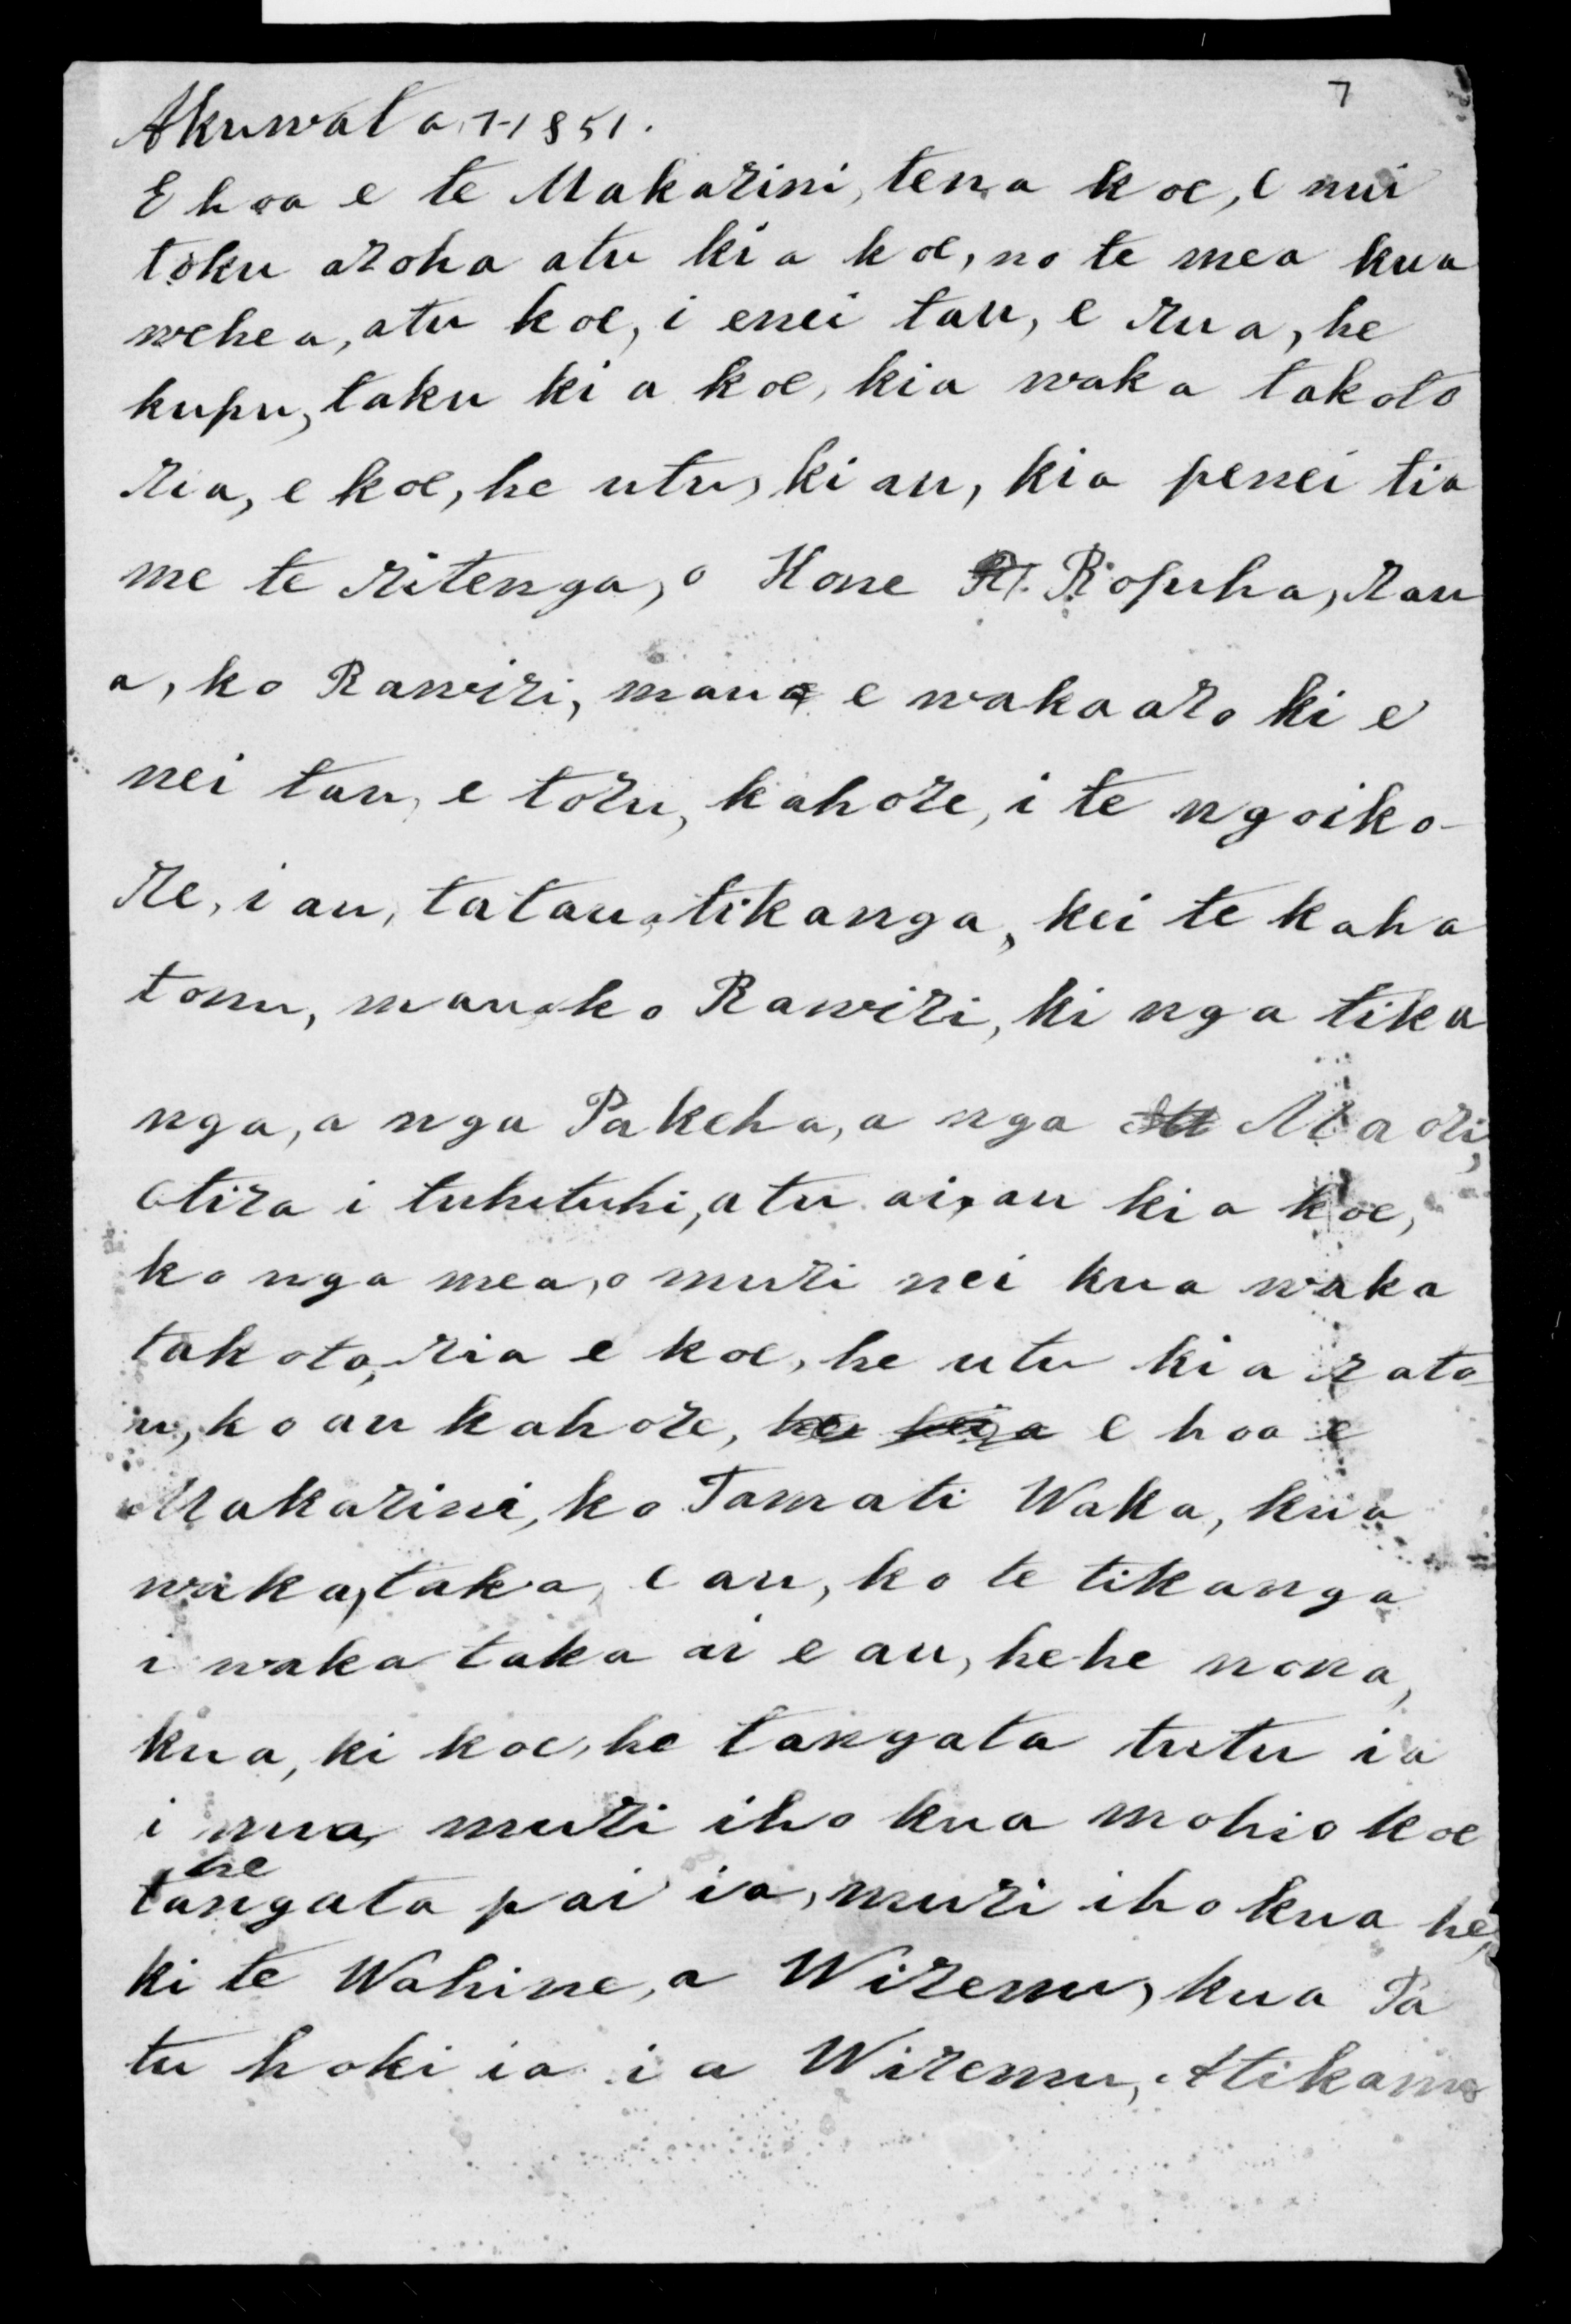 7
Akuwata, 7-1851.
E hoa e te Makarini, tena koe, e nui
toku aroha atu ki a koe, no te mea kua
wehea, atu koe, i enei tau, e rua, he
kupu, taku ki a koe, kia waka takoto
ria, e koe, he utu, ki au, kia penei tia
me te ritenga, o Hone Ropuha, rau
a, ko Rawiri, maua e wakaaro ki e
nei tau, e toru, kahore, i te ngoiko-
re, i au, tatau, tikanga, kei te kaha
tonu, maua ko Rawiri, ki nga tika
nga, a nga Pakeha, a nga Maori,
Otira i tuhituhi, atu ai, au ki a koe,
ko nga mea, o muri nei kua waka
takoto, ria e koe, he utu ki a rato
u, ko au kahore, e hoa e
Makarini, ko Tamati Waka, kua
waka, taka, e au, ko te tikanga
i waka taka ai e au, he he nona,
kua, ki koe, he tangata tutu ia
i mua, muri iho kua mohio koe
he
tangata pai ia, muri iho kua he,
ki te Wahine, a Wiremu, kua Pa
tu hoki ia i a Wiremu,